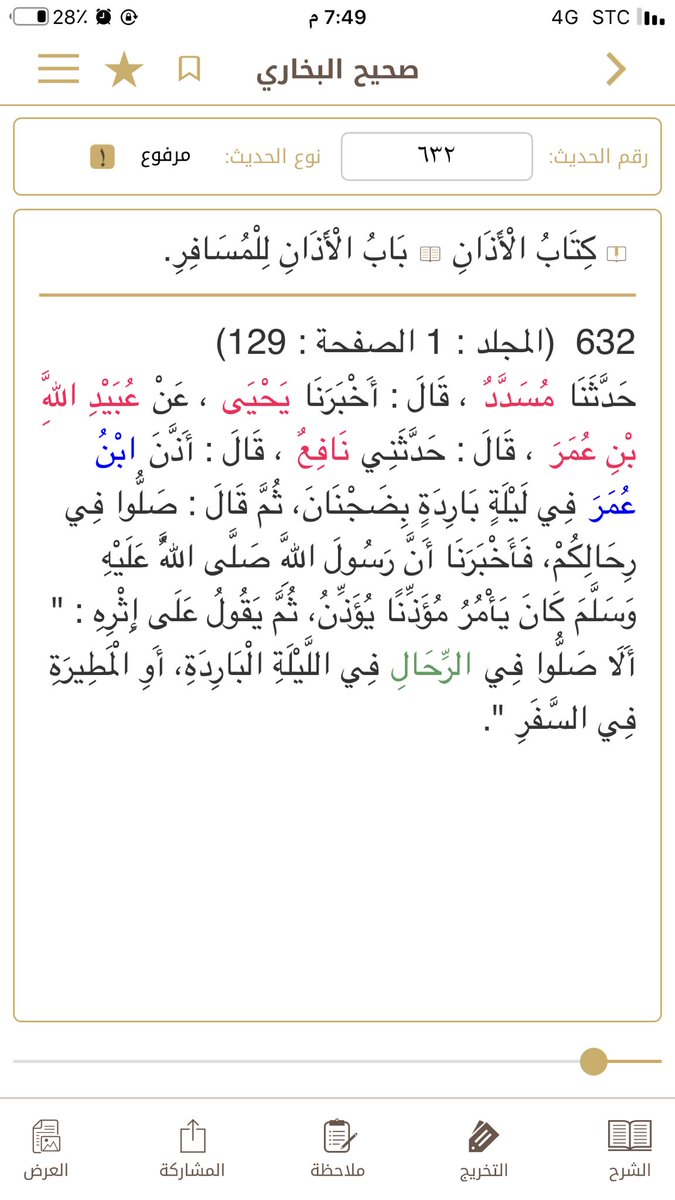 28٪ 7:49 م 4G STC
صحيح البخاري
رقم الحديث: ٦٣٢ نوع الحديث: مرفوع !
كِتَابُ الْأَذَانِ بَابُ الْأَذَانِ لِلْمُسَافِرِ.
632 (المجلد : 1 الصفحة : 129)
حَدَّثَنَا مُسَدَّدٌ ، قَالَ : أَخْبَرَنَا يَحْيَى ، عَنْ عُبَيْدِ اللَّهِ
بْنِ عُمَرَ ، قَالَ : حَدَّثَنِي نَافِعٌ ، قَالَ : أَذَّنَ ابْنُ
عُمَرَ فِي لَيْلَةٍ بَارِدَةٍ بِضَجْنَانَ، ثُمَّ قَالَ : صَلُّوا فِي
رِحَالِكُمْ، فَأَخْبَرَنَا أَنَّ رَسُولَ اللَّهِ صَلَّى اللَّهُ عَلَيْهِ
وَسَلَّمَ كَانَ يَأْمُرُ مُؤَذِّنًا يُؤَذِّنُ، ثُمَّ يَقُولُ عَلَى إِثْرِهِ : "
أَلَا صَلُّوا فِي الرِّحَالِ فِي اللَّيْلَةِ الْبَارِدَةِ، أَوِ الْمَطِيرَةِ
فِي السَّفَرِ ".
الشرح التخريج ملاحظة المشاركة العرض